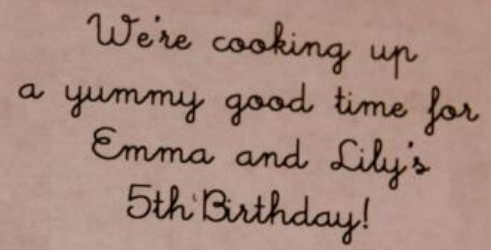 We're cooking up
a yummy good time for
Emma and Lily's
5th Birthday!